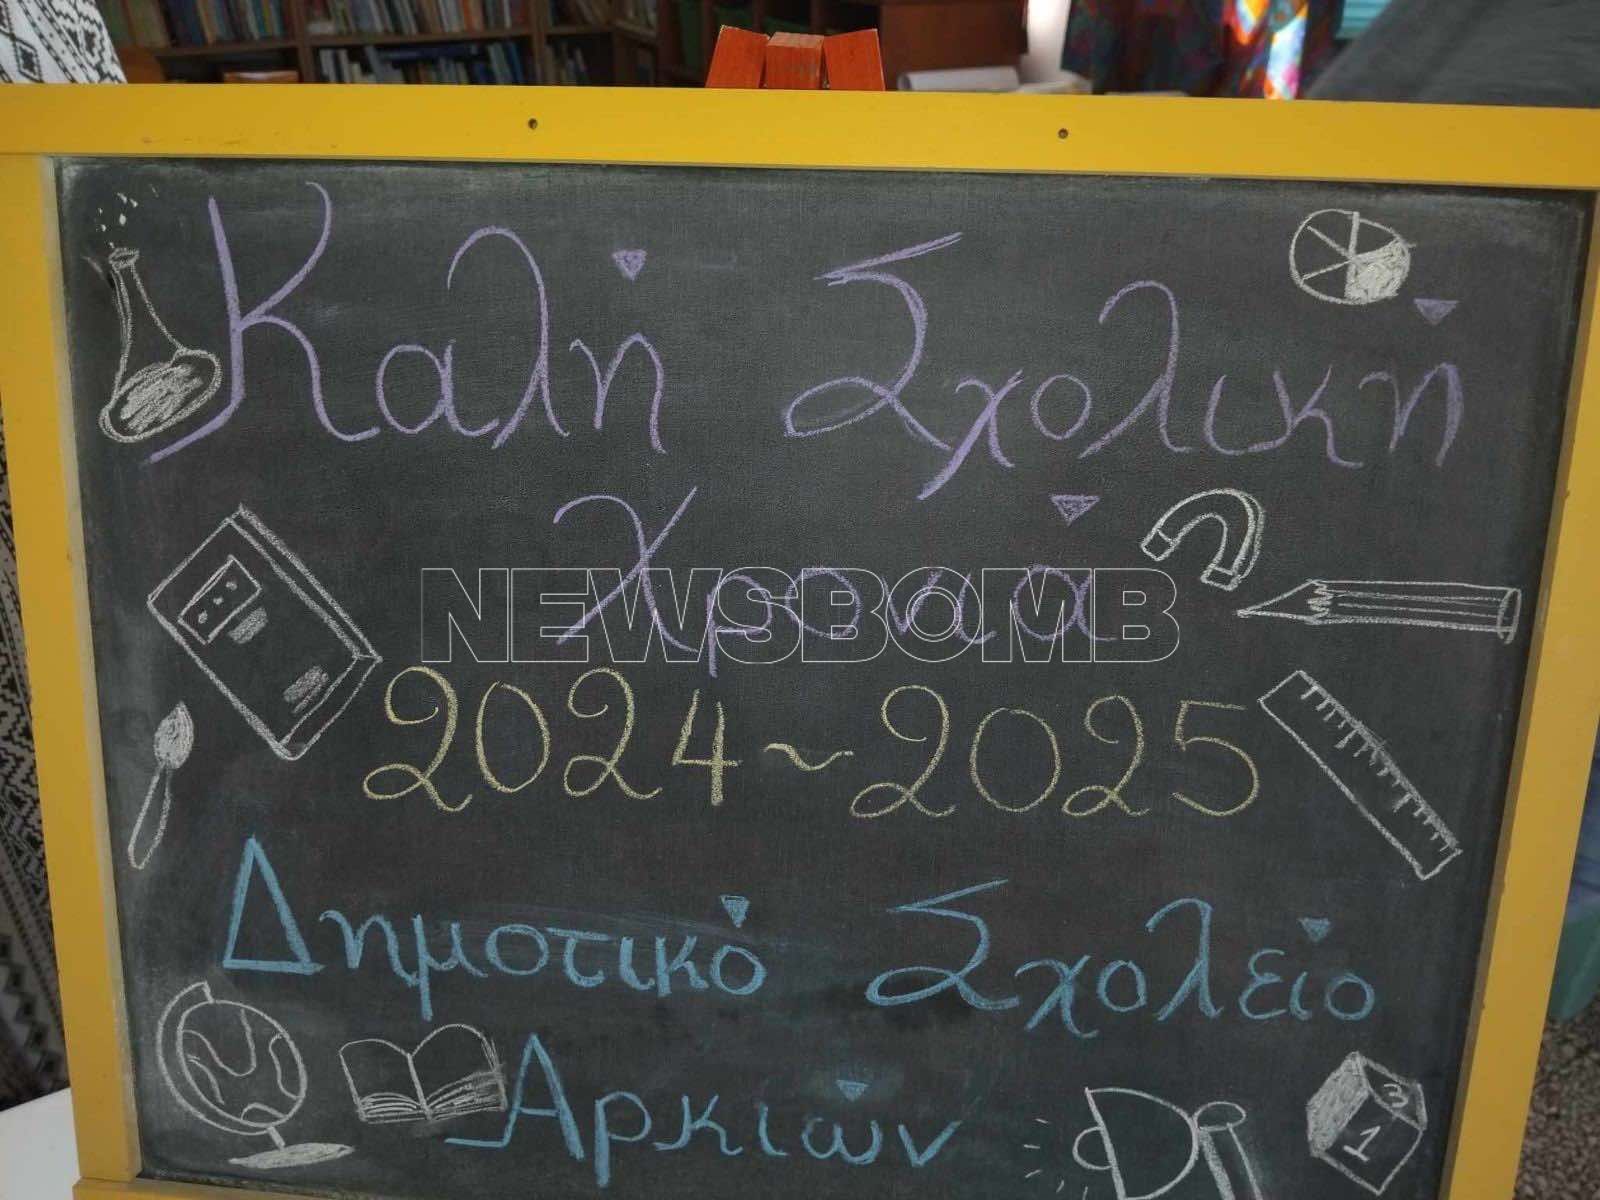 Καλή Σχολική
Χρονιά
NEWSBOMB
2024~2025
Δημοτικό Σχολείο
Αρκιών
3
1